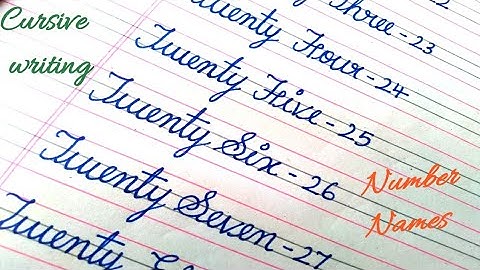 Cursive
writing
Three - 23
Twenty Four - 24
Twenty Five - 25
Twenty Six - 26
Twenty Seven - 27
Twenty
Number
Names